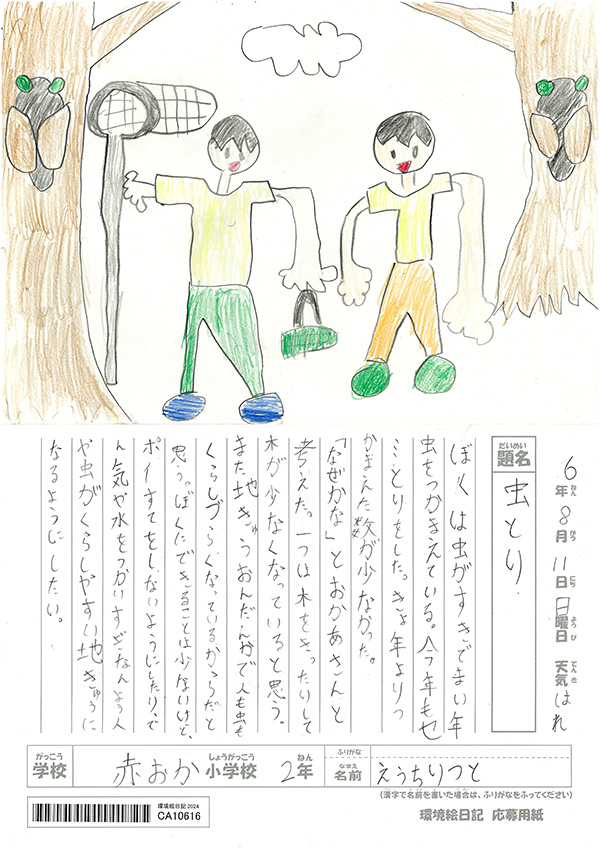 6年8月11日日曜日 天気 はれ
ねん がつ にち ようび てんき
だいめい
題名 虫とり
ぼくは虫がすきでまい年
虫をつかまえている。今年もセ
ミとりをした。きょ年よりつ
かまえた数が少なかった。
「なぜかな」とおかあさんと
考えた。一つは木をきったりして
木が少なくなっていると思う。
また地きゅうおんだんかで人も虫も
くらしづらくなっているからだと
思う。ぼくにできることは少ないけど、
ポイすてをしないようにしたり、で
ん気や水をつかいすぎなんよう人
や虫がくらしやすい地きゅうに
なるようにしたい。
がっこう しょうがっこう ねん
学校 赤おか小学校 2年
ふりがな
なまえ
名前 えうちりつと
(漢字で名前を書いた場合は、ふりがなをふってください)
環境絵日記 2024
CA10616
環境絵日記 応募用紙